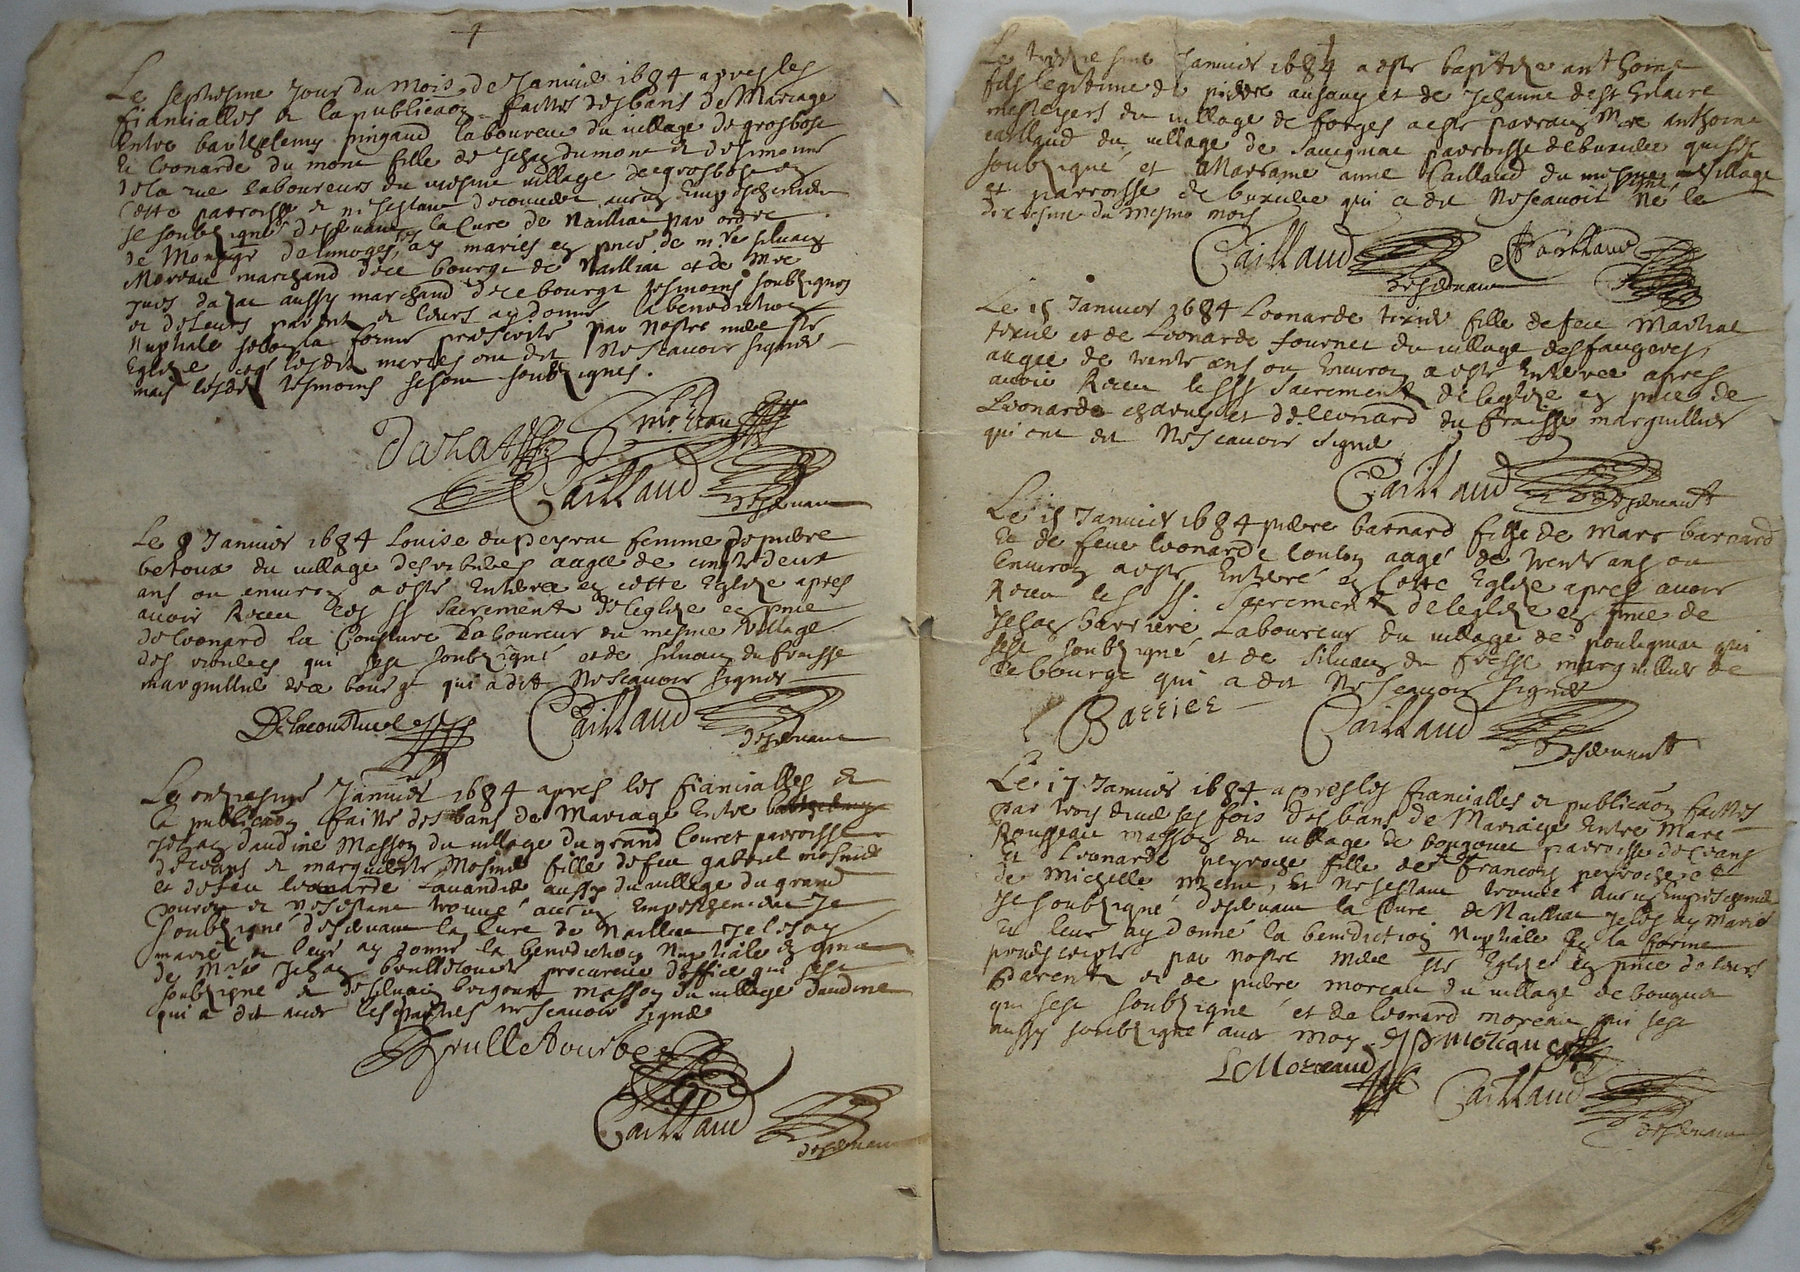 Le septiesme jour du mois de Janvier 1684 apres les
fiancialles et la publicaõn faittes des bans de Mariage
Entre barthelemy pingaud laboureur du village de grosbost
et leonarde du mont fille de Jehan dumont et de simonne
de la rue laboureurs du mesme village de grosbost en
cette parroisse et n'estant descouvert aucun empeschement
Je soubzigné desservant la Cure de Nailliac par ordre
de Monsgr de limoges les ay mariés en pñce de mre silvain
Moreau marchand de ce bourg de Nailliac et de Mre
aussy marchand de ce bourg tesmoins soubzignés
et de leurs parents et leurs ay donné la benediction
Nuptiale selon la forme prescrite par nostre mere ste
Eglize, lesdits mariés ont dit Ne scavoir signer
mais lesdits tesmoins se sont soubzignés.
Moreau
Caillaud desservant
Le 9 Janvier 1684 Louise du peyrac femme de pierre
betoux du village des viollees aagee de cinqte deux
ans ou environ a esté Enterree en cette Eglize apres
avoir Receu les SS Sacrements de leglize en pñce
de leonard la Cousture Laboureur du mesme village
des viollees qui sest soubzigné et de silvain du fraisse
marguillier de ce bourg qui a dit Ne scavoir signer
Delacousture Caillaud
desservant
Le onziesme Janvier 1684 apres les fiancialles et
la publicaõn faitte des bans de Mariage Entre barthelemy
Jehan daudine Masson du village du grand Couret parroisse
de ceans et marguerite Mosnier fille de feu gabriel mosnier
et de feu leonarde Lavandie aussy du village du grand
couret et ne sestant trouvé aucun Empeschement Je
soubzigné desservant la Cure de Nailliac Je les ay
marié et leur ay donné la benediction Nuptiale en pñce
de Mre Jehan procureur d'office qui sest
soubzigné et de silvain masson du village daudine
qui a dit avec lesparties ne scavoir signer
Caillaud
desservant
Le treziesme Janvier 1684 a este baptize anthoine
fils legitime de pierre et de Jehanne de st hilaire
mestayers du village de forges a este parrain Mre anthoine
caillaud du village de Savignac parroisse de buxiere qui sest
soubzigné et Marrame anne Caillaud du mesme village
et parroisse de buxiere qui a dit Ne scavoir signé Né le
dixiesme du mesme mois
Caillaud Caillaud
desservant
Le 15 Janvier 1684 Leonarde texier fille de feu Martial
texier et de Leonarde fournet du village des faugeres
aagee de trente ans ou Environ a esté Enterree apres
avoir Receu les SS Sacrements de leglize en pñce de
Leonarde et de leonard du fraisse marguillier
qui ont dit Ne scavoir signer
Caillaud desservant
Le 15 Janvier 1684 pierre barnard fills de Marc barnard
et de feue leonarde coulon aagé de trente ans ou
Environ a esté Enterré en Cette Eglize apres avoir
Receu les SS. Sacrements de leglize en pñce de
Jehan barriere Laboureur du village de poulignac qui
sest soubzigné et de silvain du fresse marguillier de
ce bourg qui a dit Ne scavoir signer
Barrier Caillaud
desservant
Le 17 Janvier 1684 apres les fiancialles et publicaõn faittes
par trois diverses fois des bans de Mariage Entre Marc
Rousseau masson du village de bougouet parroisse de ceans
Et Leonarde peyroche fille de francois peyroche et
de Michelle Et Ne sestant trouvé aucun Empeschement
Je soubzigné desservant la Cure de Nailliac Je les ay marié
Et leur ay donné la benediction Nuptiale En la forme
prescripte par nostre mere ste Eglize en pñce de leurs
Parents et de pierre moreau du village de bougouet
qui sest soubzigné et de leonard moreau qui sest
aussy soubzigné avec moy
L Moreaud
Caillaud
desservant